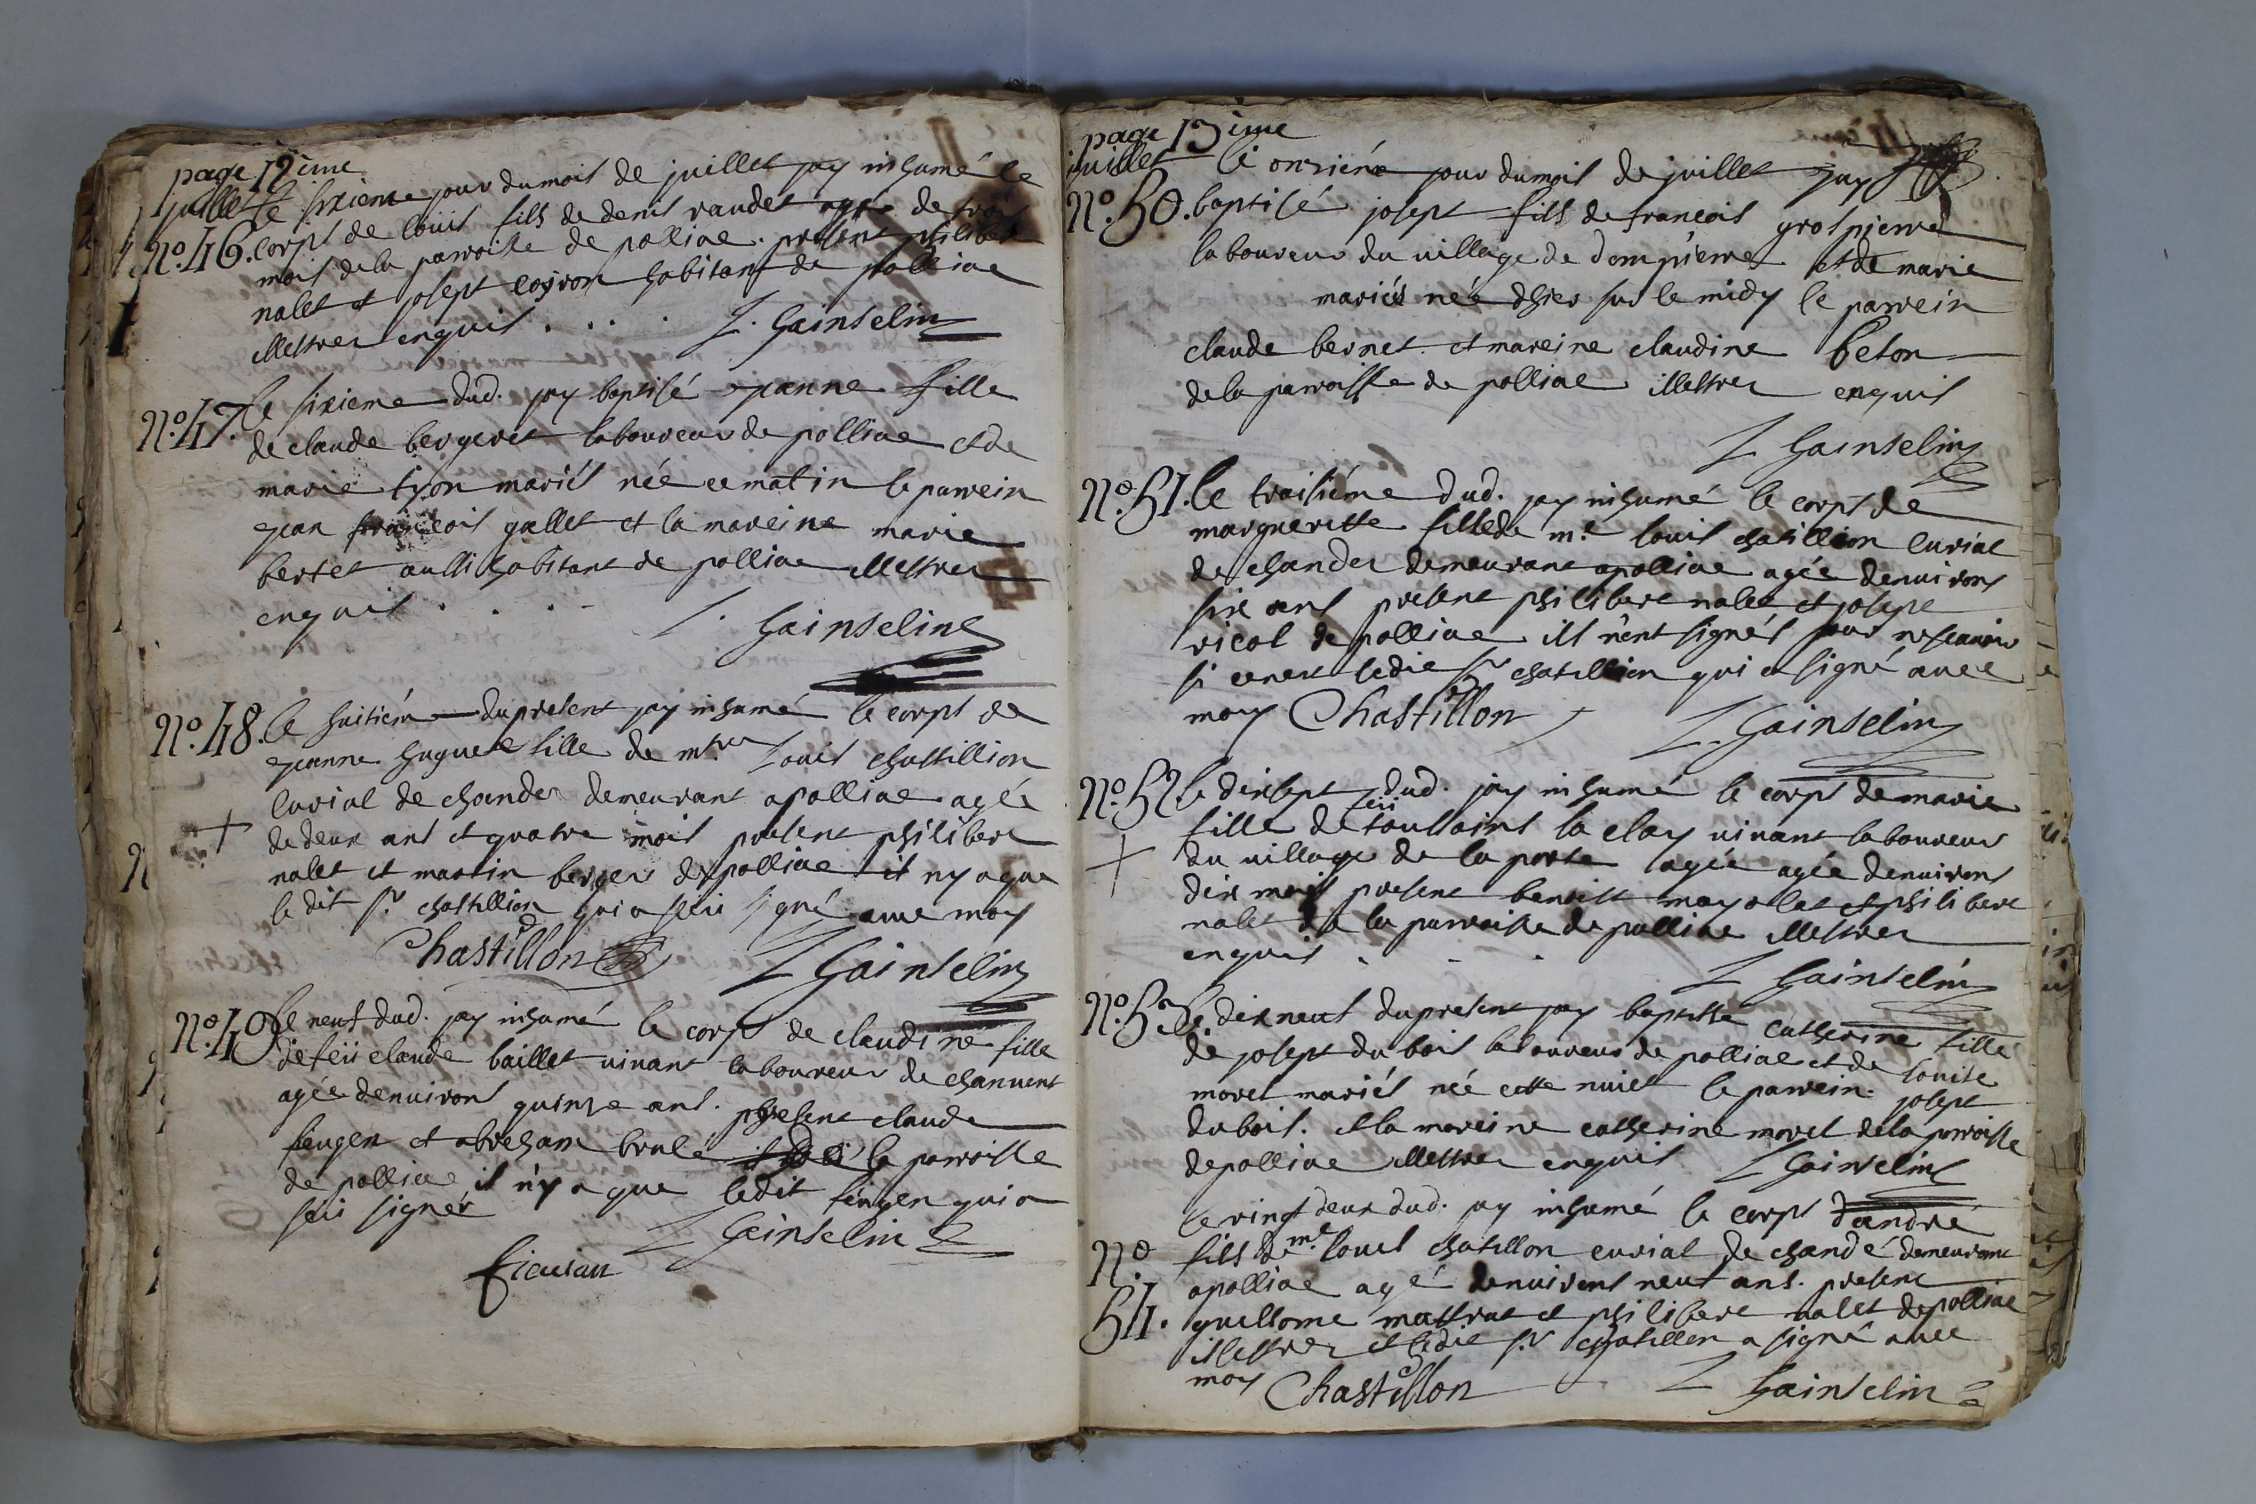 page 12 eme
juillet le sixieme jour du mois de juillet jay inhumé le
N.o 46. corps de louis fils de denis vaudet agé de trois
mois de la parroisse de polliac. present philibert
nalet et josept coyron habitant de polliac
illettrez enquis . . . . L. Gainselin
N.o 47. le sixieme dud. jay baptisé jeanne fille
de claude bergeret laboureur de polliac et de
marie tyon mariés née ce matin le parrein
jean françois gallet et la mareine marie
bertet aussi habitant de polliac illettrez
enquis . . . - L. Gainseline
N.o 48. le huitiéme du present jay inhumé le corps de
jeanne huguete fille de m.tre Louis chastillion
curial de chandes demeurant a polliac agée
de deux ans et quatre mois present philibert
nalet et martin berger de polliac il ny a que
le dit s.r chastillion qui a sceu signé avec moy
Chastillon L Gainselin
N.o 49. le neuf dud. jay inhumé le corps de claudine fille
de feü claude baillet vivant laboureur de chanvent
agée denviron quinze ans. present claude
feugen et abreham brulé la parroisse
de polliac il n'y a que ledit feugen qui a
sceu signér L Gainselin

page 13 eme
juillet le onziéme jour du mois de juillet jay
N.o 50. baptisé josept fils de françois grospierre
laboureur du village de dompierre et de marie
mariés née dhier sur le midy le parrein
claude bernet et mareine claudine beton
de la parroisse de polliac illettrez enquis
L Gainselin
N.o 51. le troisiéme dud. jay inhumé le corps de
marguerette fille de m.e louis chatillion curial
de chandes demeurant a polliac agée denvirons
six ans present philibert nalet et josept
ricol de polliac ils n'ent signés pour ne scavoir
si ce n'est ledit s.r chatillion qui a signé avec
moy Chastillon L. Gainselin
N.o 52 le dixsept dud. jay inhumé le corps de marie
feü
fille de toussaint la clay vivant laboureur
du village de la poste agée agée denvirons
dix mois present benoist mayolet et philibert
nalet de la parroisse de polliac illettrez
enquis . - . L Gainselin
N.o 53 le dixneuf du present jay baptissé catherine fille
de josept du bois laboureur de polliac et de louise
morel mariés née cette nuict le parrein josept
du bois. et la mareine catherine morel de la parroisse
de polliac illettrez enquis L Gainselin
le vingt deux dud. jay inhumé le corps d'andré
N.o fils de m.e louis chatillon curial de chandé demeurant
54. a polliac agé denvirons neuf ans. present
guilliome mattrat et philibert nalet de polliac
illettrez et ledit s.r chatillon a signé avec
moy Chastillon L Gainselin